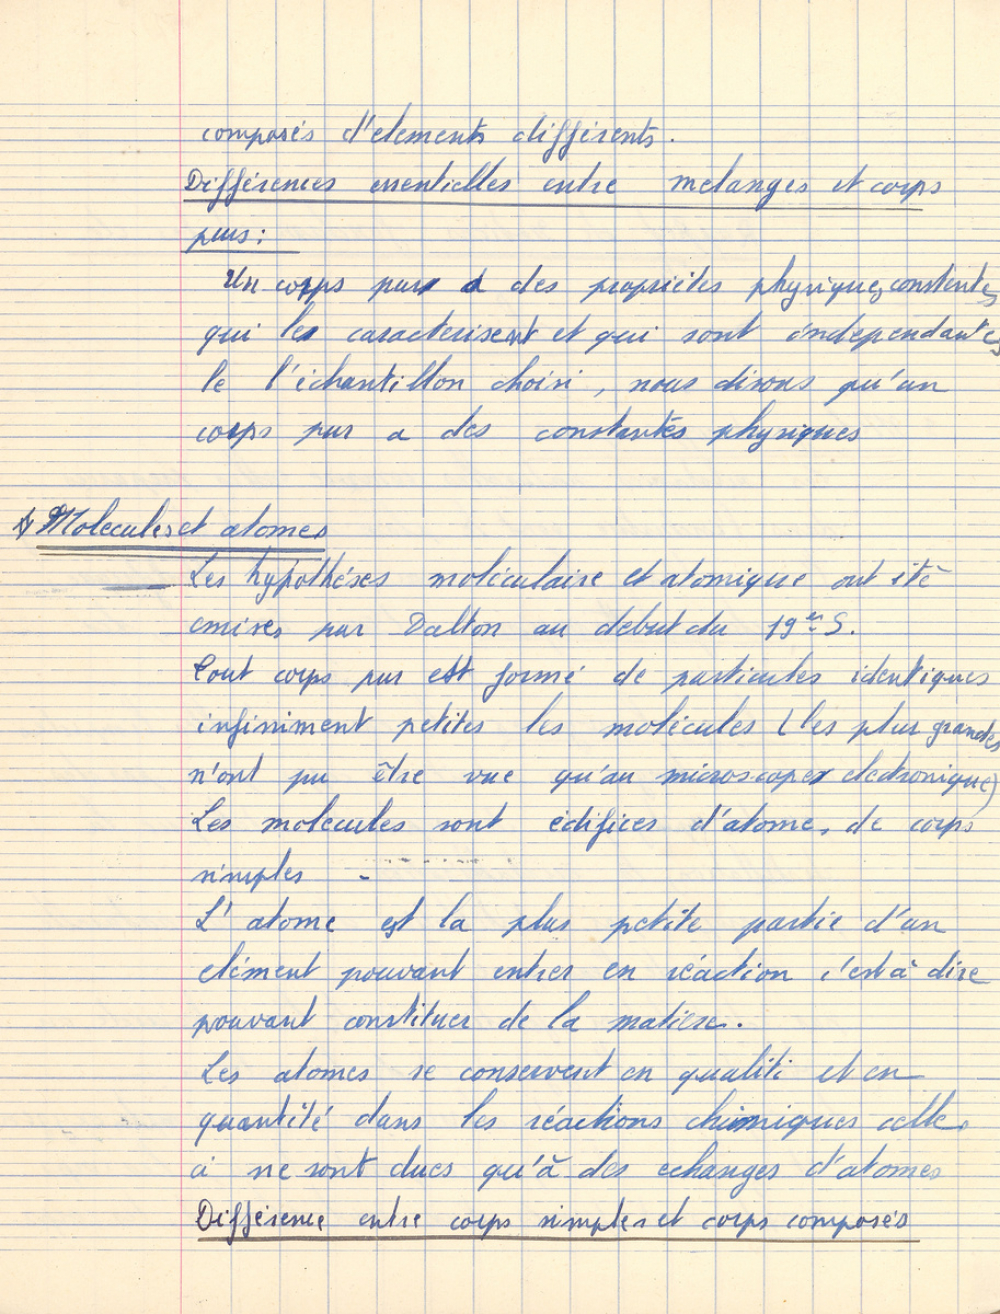 composés d'elements différents.
Différences essentielles entre melanges et corps
purs :
Un corps purs a des propriétés physiques constantes
qui les caracterisent et qui sont independantes
de l'échantillon choisi, nous disons qu'un
corps pur a des constantes physiques
Molecules et atomes
Les hypothéses moléculaire et atomique ont été
emises par Dalton au debut du 19eS.
Tout corps pur est formé de particules identiques
infiniment petites les molécules (les plus grandes
n'ont pu être vue qu'au microscopes electronique)
Les molecules sont édifices d'atomes, de corps
simples -
L'atome est la plus petite partie d'un
elément pouvant entrer en réaction c'est à dire
pouvant constituer de la matière.
Les atomes se conservent en qualité et en
quantité dans les réactions chimiques celles
ci ne sont dues qu'à des echanges d'atomes
Différence entre corps simples et corps composés